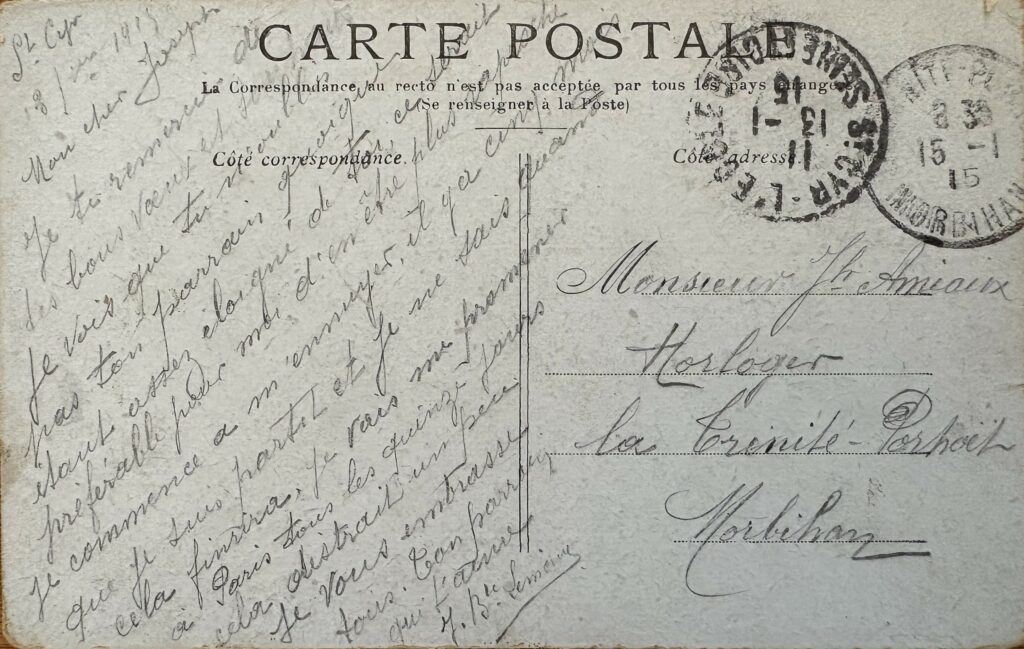 CARTE POSTALE
La Correspondance au recto n'est pas acceptée par tous les pays étrangers
(Se renseigner à la Poste)
Côté correspondance.
Côté adresse.
SEINE-ET-OISE
ST CYR-L'ECOLE
11
13 -1
15
8 35
15 -1
15
MORBIHAN
St Cyr
1915
Mon cher Joseph
Je te remercie de
tes bons vœux et
Je vois que tu n'oublies
pas ton parrain quoique
étant assez éloigné de toi, ce serait
préférable pour moi d'en être plus
je commence a m'ennuyer, il y a cinq mois
que je suis partit et je ne sais quand
cela finira, je vais me promener
à Paris tous les quinze jours
cela distrait un peu
je vous embrasse
tous. Ton parrain
qui t'aime
J. Bte Lemoine
Monsieur Jh Amiaux
Horloger
la Trinité-Porhoët
Morbihan